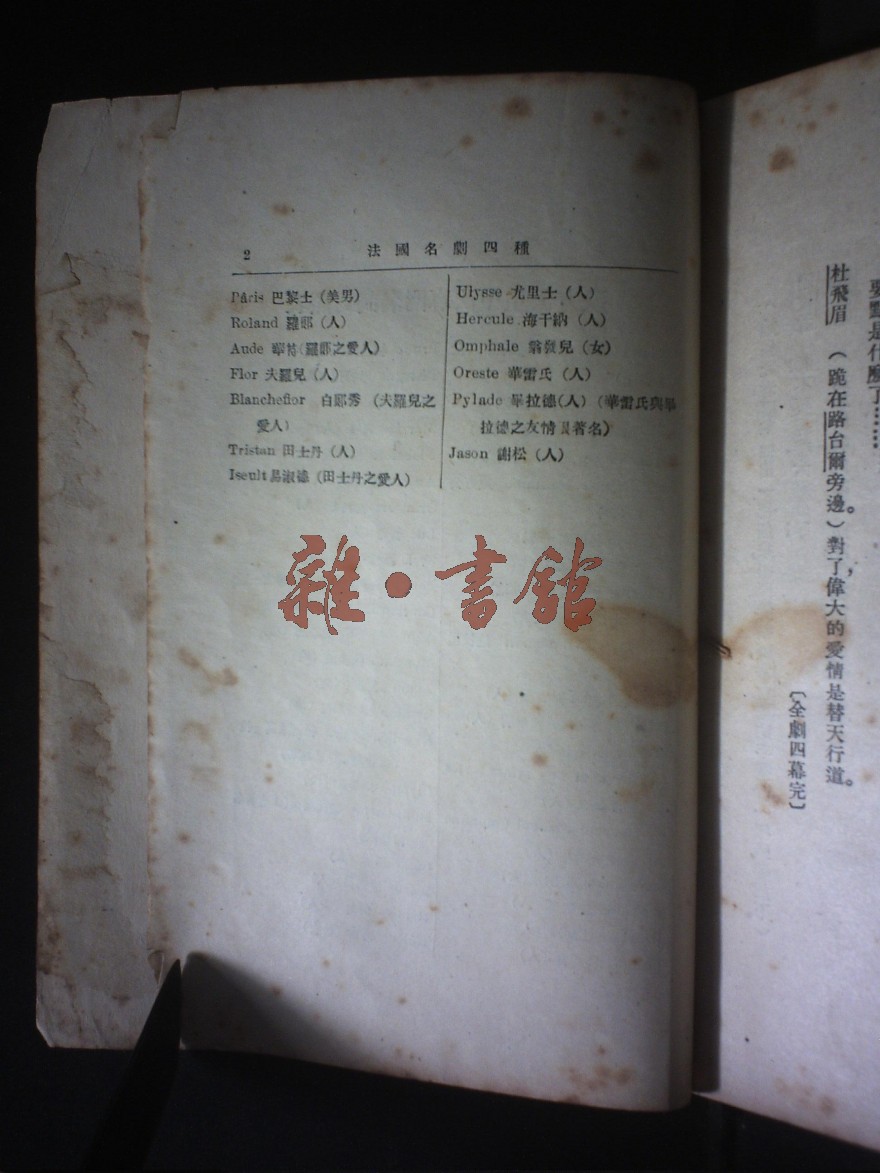 2
法國名劇四種
Pâris 巴黎士 (美男)
Roland 羅郎 (人)
Aude (羅郎之愛人)
Flor 夫羅兒 (人)
Blancheflor 白郎秀 (夫羅兒之
愛人)
Tristan 田士丹 (人)
Iseult 易淑德 (田士丹之愛人)
Ulysse 尤里士 (人)
Hercule 海干納 (人)
Omphale 翁發兒 (女)
Oreste 華雷氏 (人)
Pylade 畢拉德(人) (華雷氏與畢
拉德之友情最著名)
Jason 謝松 (人)
雜·書館
是什麼了……
杜飛眉 (跪在路台爾旁邊。)對了,偉大的愛情是替天行道。
〔全劇四幕完〕